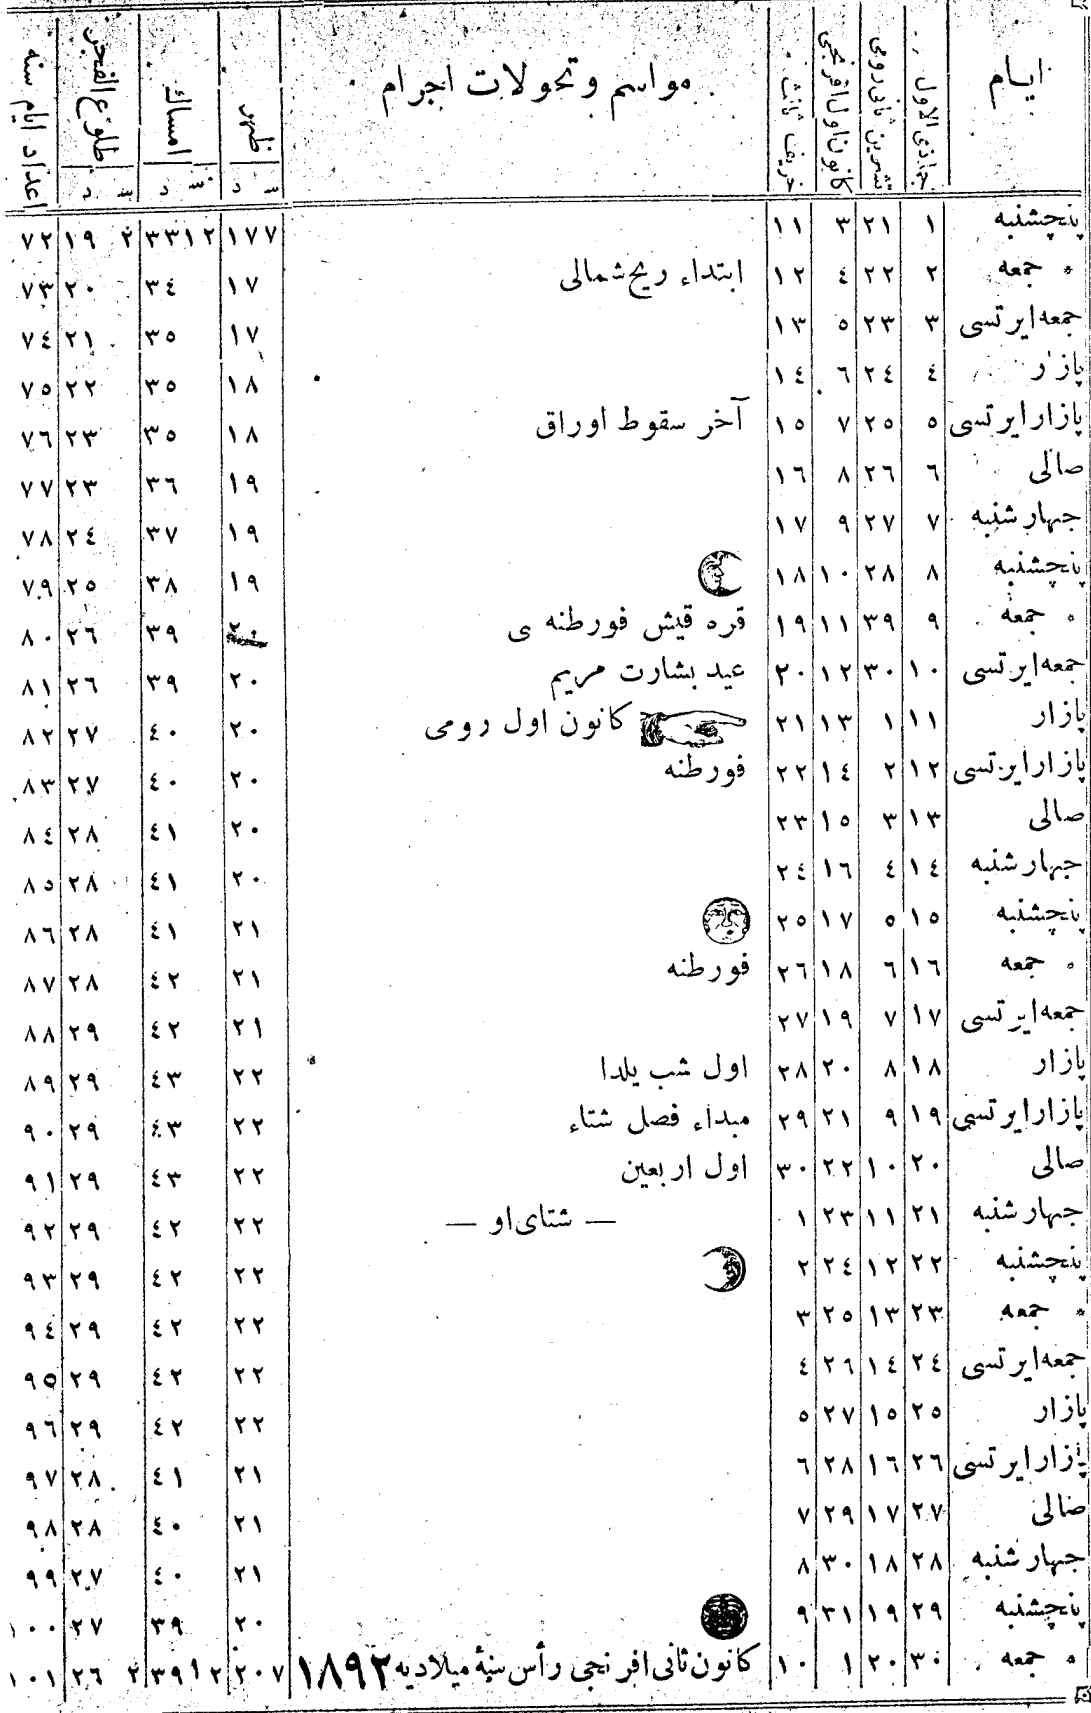 ایام | جمادی الاول | تشرین ثانی رومی | کانون اول افرنجی | خریف ثالث | مواسم وتحولات اجرام | ظهر | امساك | طلوع الفجر | اعداد ایام سنه
س د | س د | س د
پنچشنبه | ١ | ٢١ | ٣ | ١١ | | ٧ ١٧ | ١٢ ٣٣ | ٢ ١٩ | ٧٢
جمعه | ٢ | ٢٢ | ٤ | ١٢ | ابتداء ریح شمالی | ١٧ | ٣٤ | ٢٠ | ٧٣
جمعه ایرتسی | ٣ | ٢٣ | ٥ | ١٣ | | ١٧ | ٣٥ | ٢١ | ٧٤
پازار | ٤ | ٢٤ | ٦ | ١٤ | | ١٨ | ٣٥ | ٢٢ | ٧٥
پازار ایرتسی | ٥ | ٢٥ | ٧ | ١٥ | آخر سقوط اوراق | ١٨ | ٣٥ | ٢٣ | ٧٦
صالی | ٦ | ٢٦ | ٨ | ١٦ | | ١٩ | ٣٦ | ٢٣ | ٧٧
جهارشنبه | ٧ | ٢٧ | ٩ | ١٧ | | ١٩ | ٣٧ | ٢٤ | ٧٨
پنچشنبه | ٨ | ٢٨ | ١٠ | ١٨ | | ١٩ | ٣٨ | ٢٥ | ٧٩
جمعه | ٩ | ٣٩ | ١١ | ١٩ | قره قیش فورطنه ی | ٢٠ | ٣٩ | ٢٦ | ٨٠
جمعه ایرتسی | ١٠ | ٣٠ | ١٢ | ٢٠ | عید بشارت مریم | ٢٠ | ٣٩ | ٢٦ | ٨١
پازار | ١١ | ١ | ١٣ | ٢١ | کانون اول رومی | ٢٠ | ٤٠ | ٢٧ | ٨٢
پازار ایرتسی | ١٢ | ٢ | ١٤ | ٢٢ | فورطنه | ٢٠ | ٤٠ | ٢٧ | ٨٣
صالی | ١٣ | ٣ | ١٥ | ٢٣ | | ٢٠ | ٤١ | ٢٨ | ٨٤
جهارشنبه | ١٤ | ٤ | ١٦ | ٢٤ | | ٢٠ | ٤١ | ٢٨ | ٨٥
پنچشنبه | ١٥ | ٥ | ١٧ | ٢٥ | | ٢١ | ٤١ | ٢٨ | ٨٦
جمعه | ١٦ | ٦ | ١٨ | ٢٦ | فورطنه | ٢١ | ٤٢ | ٢٨ | ٨٧
جمعه ایرتسی | ١٧ | ٧ | ١٩ | ٢٧ | | ٢١ | ٤٢ | ٢٩ | ٨٨
پازار | ١٨ | ٨ | ٢٠ | ٢٨ | اول شب یلدا | ٢٢ | ٤٣ | ٢٩ | ٨٩
پازار ایرتسی | ١٩ | ٩ | ٢١ | ٢٩ | مبداء فصل شتاء | ٢٢ | ٤٣ | ٢٩ | ٩٠
صالی | ٢٠ | ١٠ | ٢٢ | ٣٠ | اول اربعین | ٢٢ | ٤٣ | ٢٩ | ٩١
جهارشنبه | ٢١ | ١١ | ٢٣ | ١ | — شتای او — | ٢٢ | ٤٢ | ٢٩ | ٩٢
پنچشنبه | ٢٢ | ١٢ | ٢٤ | ٢ | | ٢٢ | ٤٢ | ٢٩ | ٩٣
جمعه | ٢٣ | ١٣ | ٢٥ | ٣ | | ٢٢ | ٤٢ | ٢٩ | ٩٤
جمعه ایرتسی | ٢٤ | ١٤ | ٢٦ | ٤ | | ٢٢ | ٤٢ | ٢٩ | ٩٥
پازار | ٢٥ | ١٥ | ٢٧ | ٥ | | ٢٢ | ٤٢ | ٢٩ | ٩٦
پازار ایرتسی | ٢٦ | ١٦ | ٢٨ | ٦ | | ٢١ | ٤١ | ٢٨ | ٩٧
صالی | ٢٧ | ١٧ | ٢٩ | ٧ | | ٢١ | ٤٠ | ٢٨ | ٩٨
جهارشنبه | ٢٨ | ١٨ | ٣٠ | ٨ | | ٢١ | ٤٠ | ٢٧ | ٩٩
پنچشنبه | ٢٩ | ١٩ | ٣١ | ٩ | | ٢٠ | ٣٩ | ٢٧ | ١٠٠
جمعه | ٣٠ | ٢٠ | ١ | ١٠ | کانون ثانی افرنجی رأس سنهٔ میلادیه ١٨٩٢ | ٧ ٢٠ | ١٢ ٣٩ | ٢ ٢٦ | ١٠١